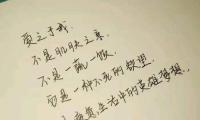 爱之于我
不是肌肤之亲，
不是一蔬一饭，
它是一种不死的欲望，
是疲惫生活中的英雄梦想。